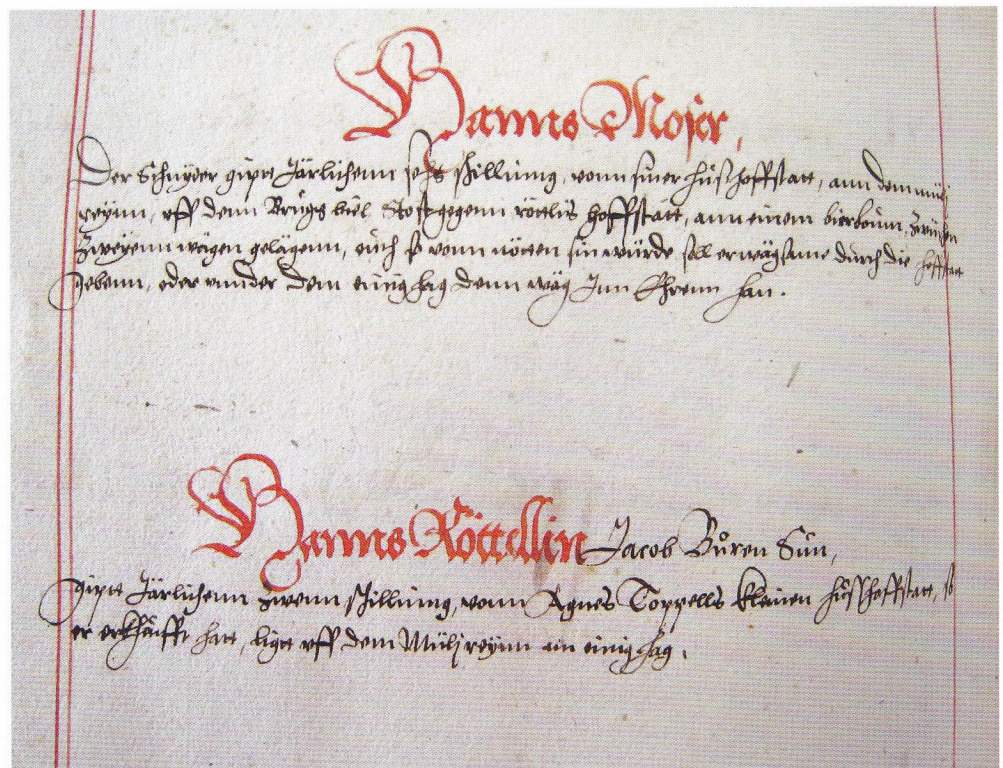 Hanns Mojer,
Der Schnyder gipt Järlichenn sechs schilling, vonn siner hußhoffstatt, ann dem mülj
reynn, vff denn Brügg biel, Stost gegenn röttlis hoffstatt, ann einem bierboum, zwüschen
zweyenn wägen gelägenn, ouch so vonn nötten sin würde soll er wägsame durch die hoffstatt
gebenn, oder vunder dem einig hag denn wäg Inn Ehrenn han.
Hanns Röttellin Jacob Buͦren Sun,
gipt Järlichenn zwenn schilling, vonn Agnes Toppells kleinen hußhoffstatt, so
er erkhoufft hatt, ligt vff dem Mülj reynn am einig hag.